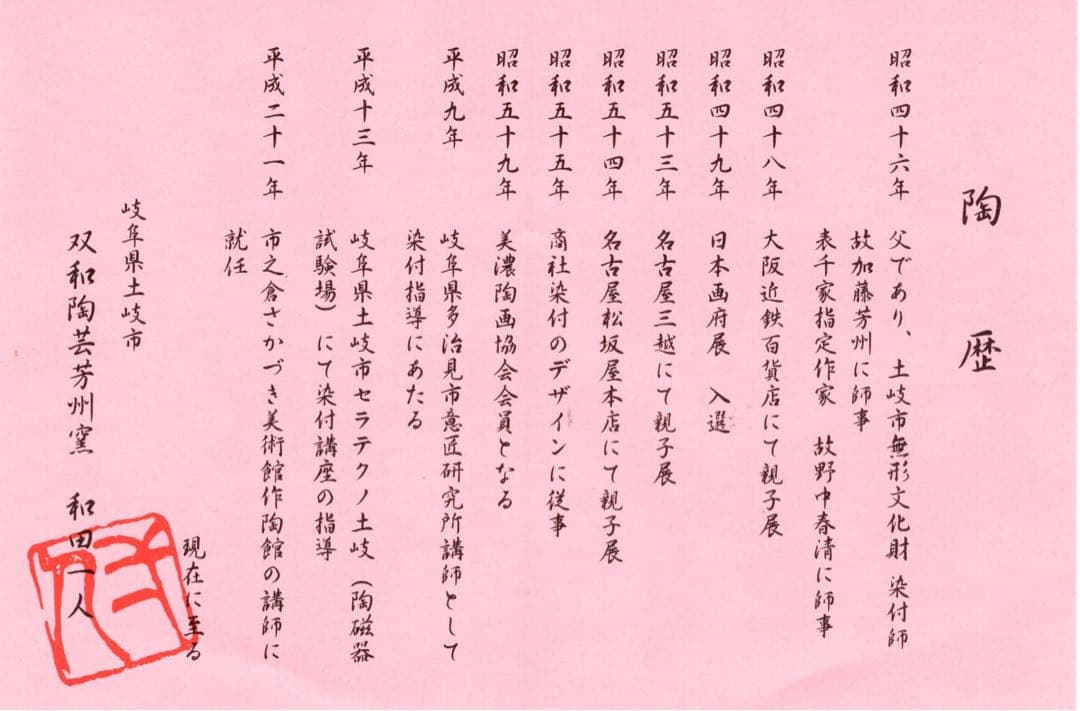 陶 歴
昭和四十六年 父であり、土岐市無形文化財 染付師
故加藤芳州に師事
表千家指定作家 故野中春清に師事
昭和四十八年 大阪近鉄百貨店にて親子展
昭和四十九年 日本画府展 入選
昭和五十三年 名古屋三越にて親子展
昭和五十四年 名古屋松坂屋本店にて親子展
昭和五十五年 商社染付のデザインに従事
昭和五十九年 美濃陶画協会会員となる
平成九年 岐阜県多治見市意匠研究所講師として
染付指導にあたる
平成十三年 岐阜県土岐市セラテクノ土岐(陶磁器
試験場)にて染付講座の指導
平成二十一年 市之倉さかづき美術館作陶館の講師に
就任
現在に至る
岐阜県土岐市
双和陶芸芳州窯 和田一人